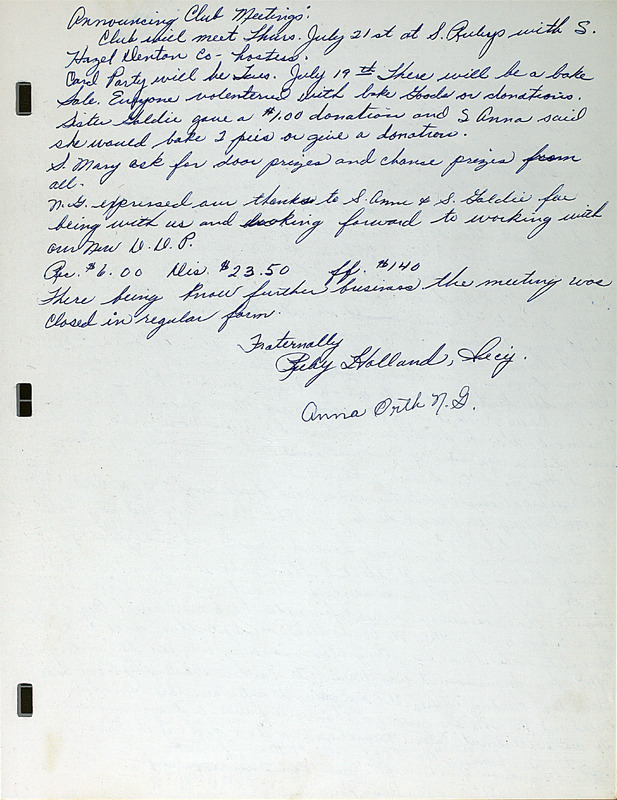 Announcing Club Meetings:
Club will meet Thurs. July 21st at S. Rubys with S.
Hazel Denton Co-hostess.
Card Party will be Tues. July 19th There will be a bake
Sale. Everyone volenteried with bake Goods or donations.
Sister Goldie gave a $1.00 donation and S Anna said
she would bake 2 pies or give a donation.
S. Mary ask for door prizes and chance prizes from
all.
N.G. expressed our thanks to S. Anne & S. Goldie for
being with us and looking forward to working with
our New D.D.P.
Rec. $6.00 Dis. $23.50 ff. $1.40
There being know further business the meeting was
Closed in regular form.
Fraternally
Ruby Holland, Secy.
Anna Orth N.G.